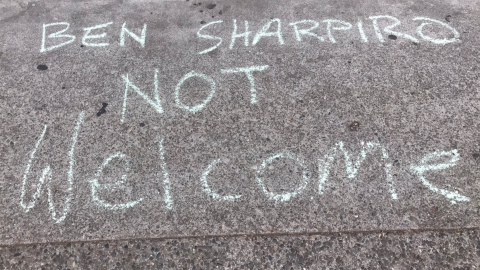 BEN SHARPIRO
NOT
Welcome